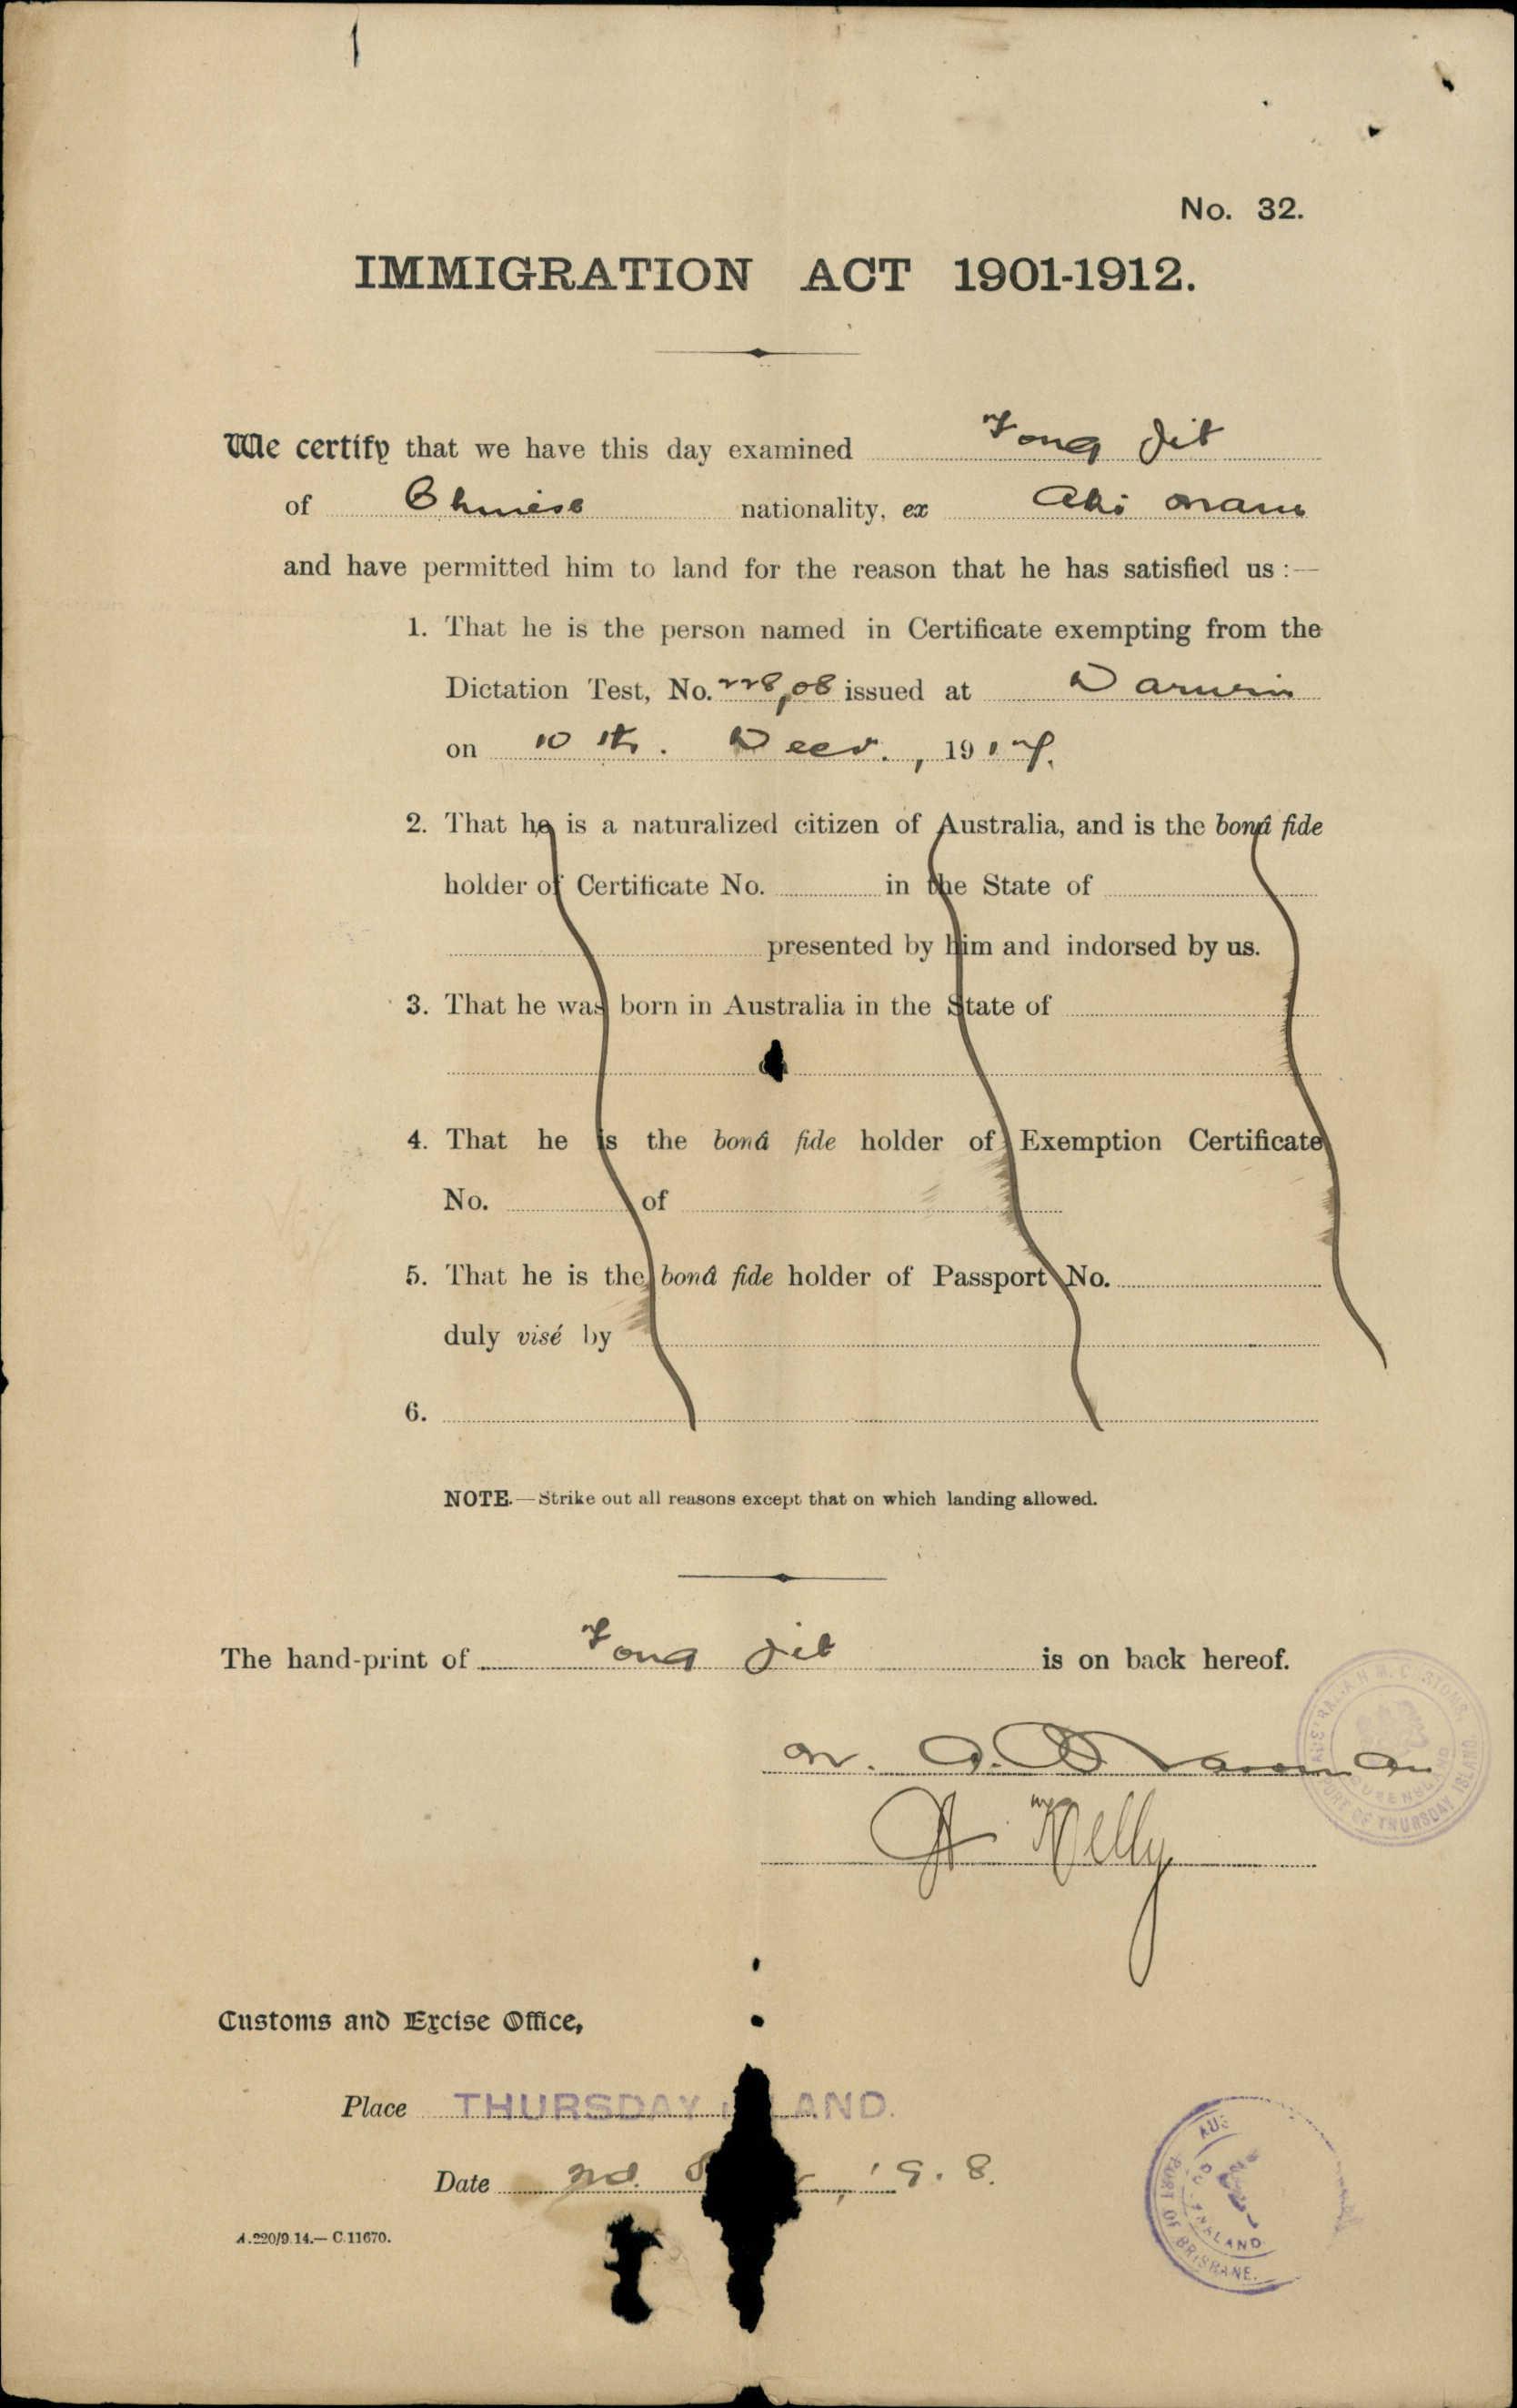 No. 32.
IMMIGRATION ACT 1901-1912.
We certify that we have this day examined Fong Jit
of Chinese nationality, ex Aki Maru
and have permitted him to land for the reason that he has satisfied us :—
1. That he is the person named in Certificate exempting from the
Dictation Test, No. 228,08 issued at Darwin
on 10 th. Decr., 1917.
2. That he is a naturalized citizen of Australia, and is the bonâ fide
holder of Certificate No. in the State of
presented by him and indorsed by us.
3. That he was born in Australia in the State of
4. That he is the bonâ fide holder of Exemption Certificate
No. of
5. That he is the bonâ fide holder of Passport No.
duly visé by
6.
NOTE.—Strike out all reasons except that on which landing allowed.
The hand-print of Fong Jit is on back hereof.
PORT OF THURSDAY ISLAND
QUEENSLAND
Kelly
Customs and Excise Office,
Place THURSDAY AND.
Date 19.8.
A.220/9.14.—C.11670.
PORT OF BRISBANE.